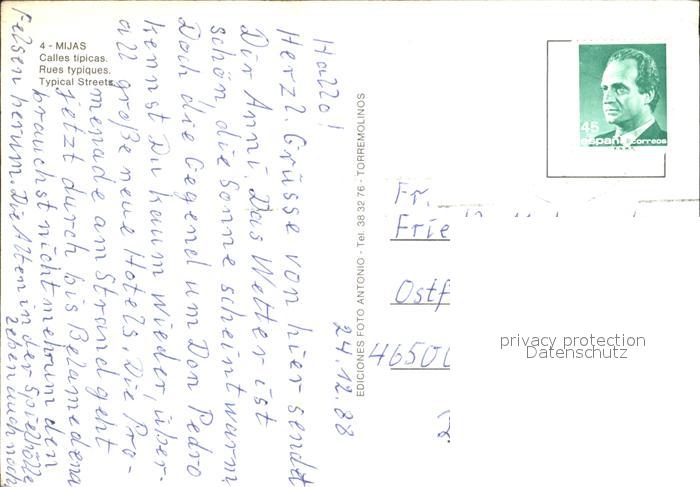 4 - MIJAS
Calles típicas.
Rues typiques.
Typical Streets.
24.12.88
Hallo!
Herzl. Grüsse von hier sendet
Dir Anni. Das Wetter ist
schön die Sonne scheint warm,
Doch die Gegend um Don Pedro
kennst Du kaum wieder, über-
all große neue Hotels. Die Pro-
menade am Strand geht
jetzt durch bis Belamedena
brauchst nicht mehr um den
Felsen herum. Die Alten in der Spielhölle
leben auch noch
EDICIONES FOTO ANTONIO - Tel. 38 32 76 - TORREMOLINOS
45
españa correos
Fr.
Frie
Ostf
46500
privacy protection
Datenschutz